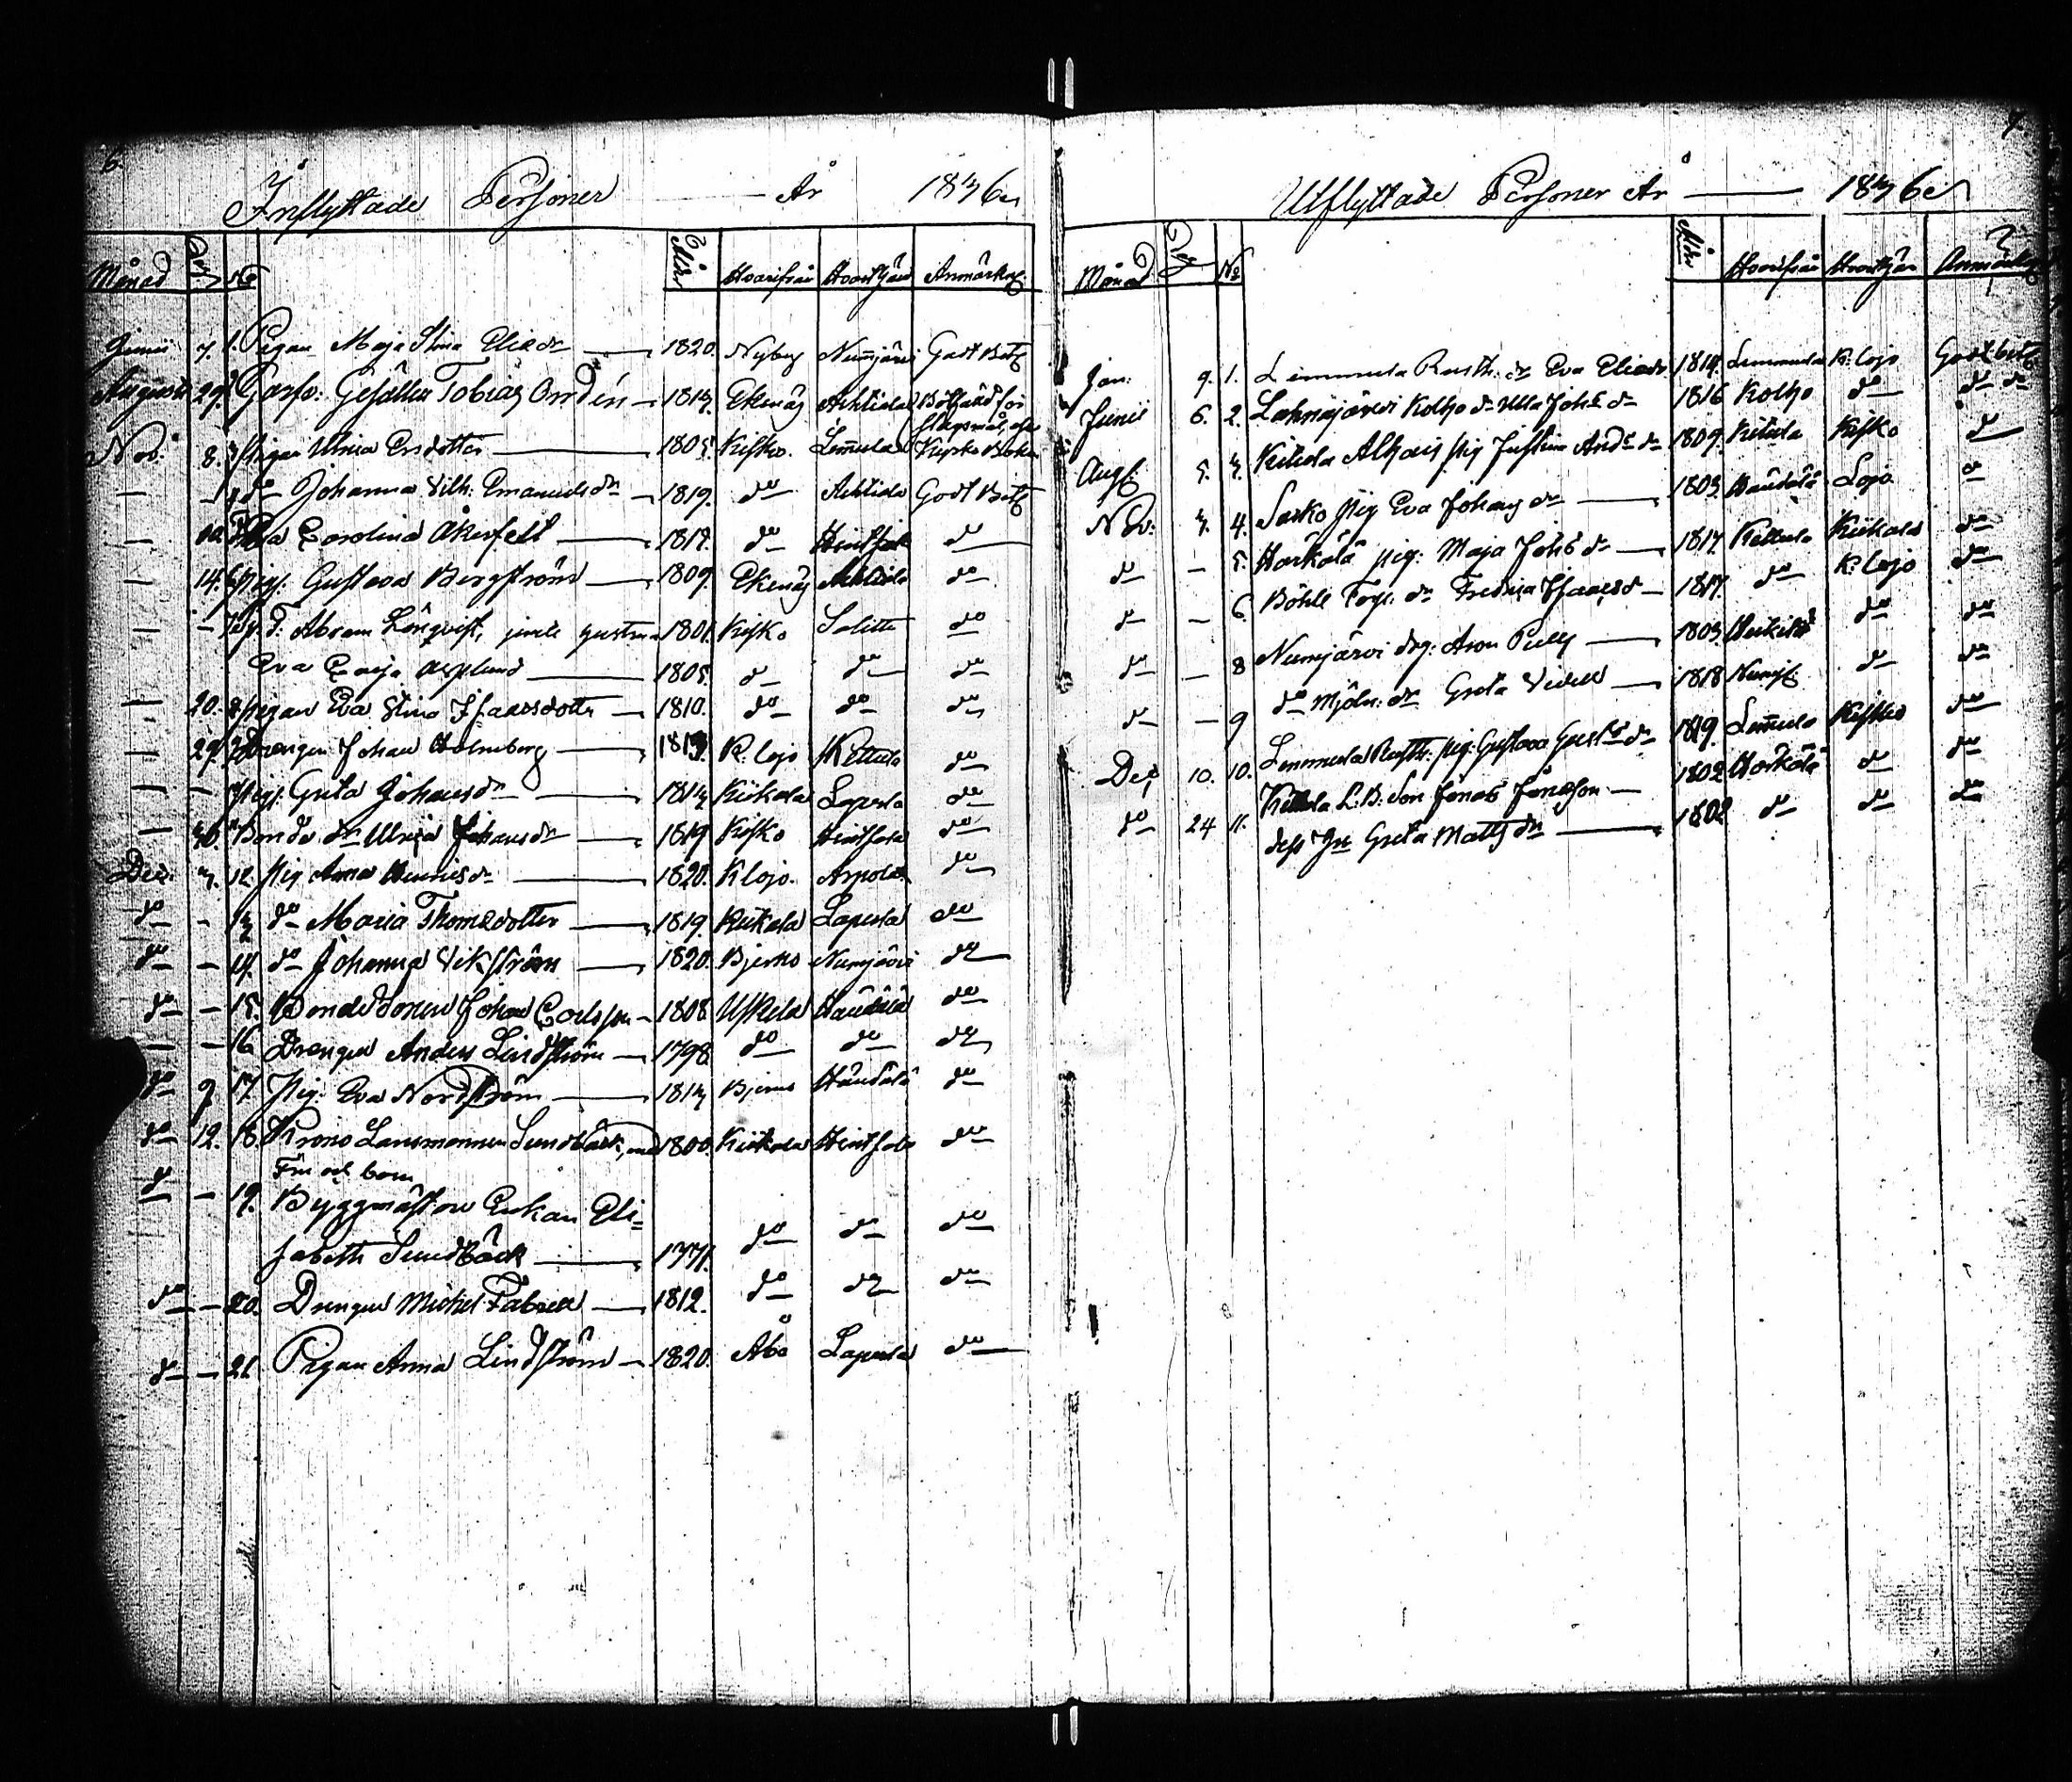 6.
Inflyttade Personer År 1836.
Månad Dag No Ålder Hvarifrån Hvarthän Anmärkn:
Junii 7. 1. Pigan Maja Stina Eliædr 1820. Nyby Nummjärvi Godt Bet.
Augusti 29. Garfv: Gesällen Tobias 1814. Ekenäs Ahtiala
Nov: 8. 3 Pigan Ulrica Ersdotter 1805. Kisko. Lemula Kisko
— — 4 do Johanna Vilh. Emanuelsdr 1819. do Ahtiala Godt Bet
— 10. Carolina Åkerfelt 1818. do do
— 14. 6 Pig. Gustava Bergström 1809. Ekenäs Ahtiala do
— 7 Abram Lönqvist, jemte hustru 1801. Kisko Salitte do
Eva Caisa Asplund 1805. do do do
— 20. 8 Pigan Eva Stina Isaacsdotter 1810. do do do
— 29. 9 Drengen Johan Holmberg 1813. K. Lojo Kettula do
— — Pig. Greta Johansdr 1813 Kiikala Laperla do
— 30. 11 Bonde dr Ulrica Johansdr 1819 Kisko do
Dec. 3. 12. Pig Anna Henricsdr 1820. K Lojo. Arpola do
do - 13 do Maria Thomædotter 1819. Kiikala Laperla do
do — 14. do Johanna Vikström 1820. Bjerno Nummjärvi do
do — 15. Bonde Sonen Johan Carlsson 1808 Uskela Haudala do
— — 16 Drengen Anders Lindström 1798. do do do
do 9 17. Pig. Eva Nordström 1813 Bjerno Haudala do
do 12. 18. Krono Länsmannen Sundbäck, med 1800. Kiikala do
Fru och barn
do — 19. Byggmästare Enkan Eli=
sabeth Sundbäck 1771. do do do
do — 20. Drengen Michel Fabrell 1812. do do do
do — 21. Pigan Anna Lindström 1820. Åbo Laperla do
7.
Utflyttade Personer År 1836
Månad Dag No Ålder Hvarifrån Hvarthän Anmärkn
Jan: 9. 1. Lemmula Rusth. dr Eva Eliædr 1814. Lemmula K. Lojo Godt bet
Junii 6. 2. Lahnajärvi Kolho dr Ulla Johs dr 1816 Kolho do do do
Aug. 5. 3. Ketula Alhais Pig Justina Ands dr 1809. Ketula Kisko do
Nov: 3. 4. Sarko Pig Eva Johans dr 1803. Haudala Lojo do
do — 5. Härkälä Pig: Maja Johs dr 1817. Kettula Kiikala do
do — 6 Böhle dr Fredrica Isaacsd 1817. do K. Lojo do
do — 8 Nummjärvi drg: Aron 1803. do do
do — 9 do Mjöln. dr Greta 1818 Numj. do do
Dec 10. 10. Lemmula Rusth: Pig: Gustava Gustsdr 1819. Lemula Kisko do
do 24 11. Kettula L. B. Son Jonas Jonasson 1802 Härkälä do do
dess Hu Greta Matts dr 1802 do do do